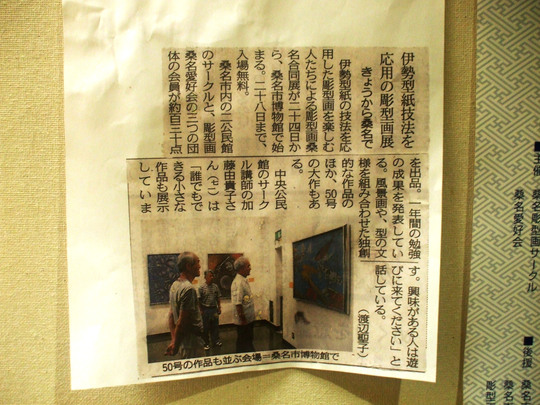 伊勢型紙技法を
応用の彫型画展
きょうから桑名で
伊勢型紙の技法を応
用した彫型画を楽しむ
人たちによる彫型画桑
名合同展が二十四日か
ら、桑名市博物館で始
まる。二十八日まで、
入場無料。
桑名市内の二公民館
のサークルと、彫型画
桑名愛好会の三つの団
体の会員が約百三十点
を出品。一年間の勉強
の成果を発表してい
る。風景画や、型の文
様を組み合わせた独創
的な作品の
ほか、50号
の大作もあ
る。
中央公民
館のサーク
ル講師の加
藤由貴子さ
ん(七〇)は
「誰でもで
きる小さな
作品も展示
していま
す。興味がある人は遊
びに来てください」と
話している。
(渡辺聖子)
50号の作品も並ぶ会場=桑名市博物館で
■主催
桑名彫型画サークル
桑名愛好会
■後援
桑
彫型